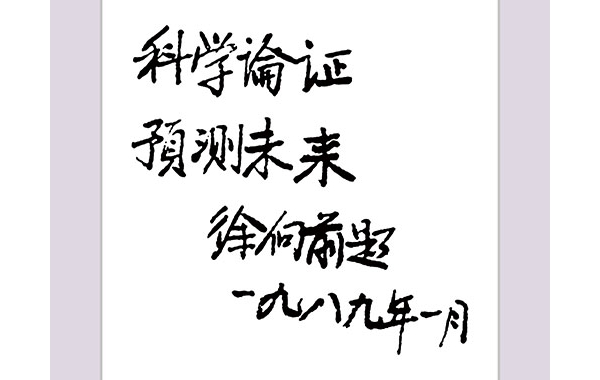 科学论证
預测未来
徐向前题
一九八九年一月